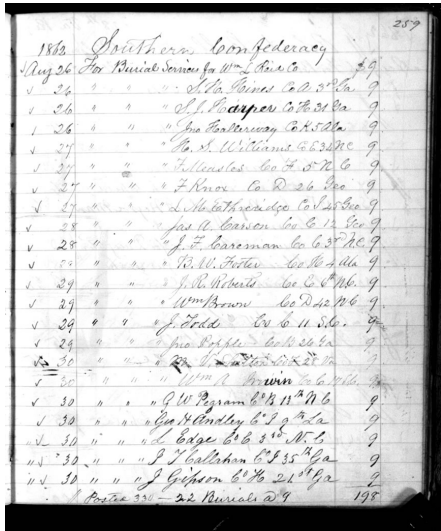 259
1863 Southern Confederacy
Aug 26 For Burial Services for Wm L Co $9
" 26 " " " S. N. Hines Co A. 3rd Ga 9
" 26 " " " S. J. Harper Co H. 31 Ga 9
" 26 " " " Jno Hallerway Co K. 5 Ala 9
" 27 " " " H. S. Williams C E 34 N.C 9
" 27 " " " F. Co H. 5 N. C 9
" 27 " " " F Knox Co. D 26 Geo 9
" 27 " " " L. M. Ethreridge Co I 45 Geo 9
" 28 " " " Jas A. Carson Co E. 12 Geo 9
" 28 " " " J. F. Careman Co C 3rd N.C. 9
" " " " B. W. Foster Co K 4 Ala 9
" 29 " " " J. R. Roberts Co C. 6th N.C. 9
" 29 " " " Wm Brown Co D 42 N C 9
" 29 " " " J. Todd Co C 11. S.C. 9
" 29 " " " Jno Popple Co B 26 9
" 30 " " " M. V. 28
" 30 " " " Wm A. Co C.
" 30 " " " G. W Pegram Co B 11th N. C 9
" 30 " " " Geo H Andley Co I 9th La 9
" 30 " " " L Edge Co C 3rd N. C 9
" 30 " " " J T Callahan Co I 35th Ga 9
" 30 " " " J Gipson Co H 21st Ga 9
Posted 330 — 22 Burials a 9 198